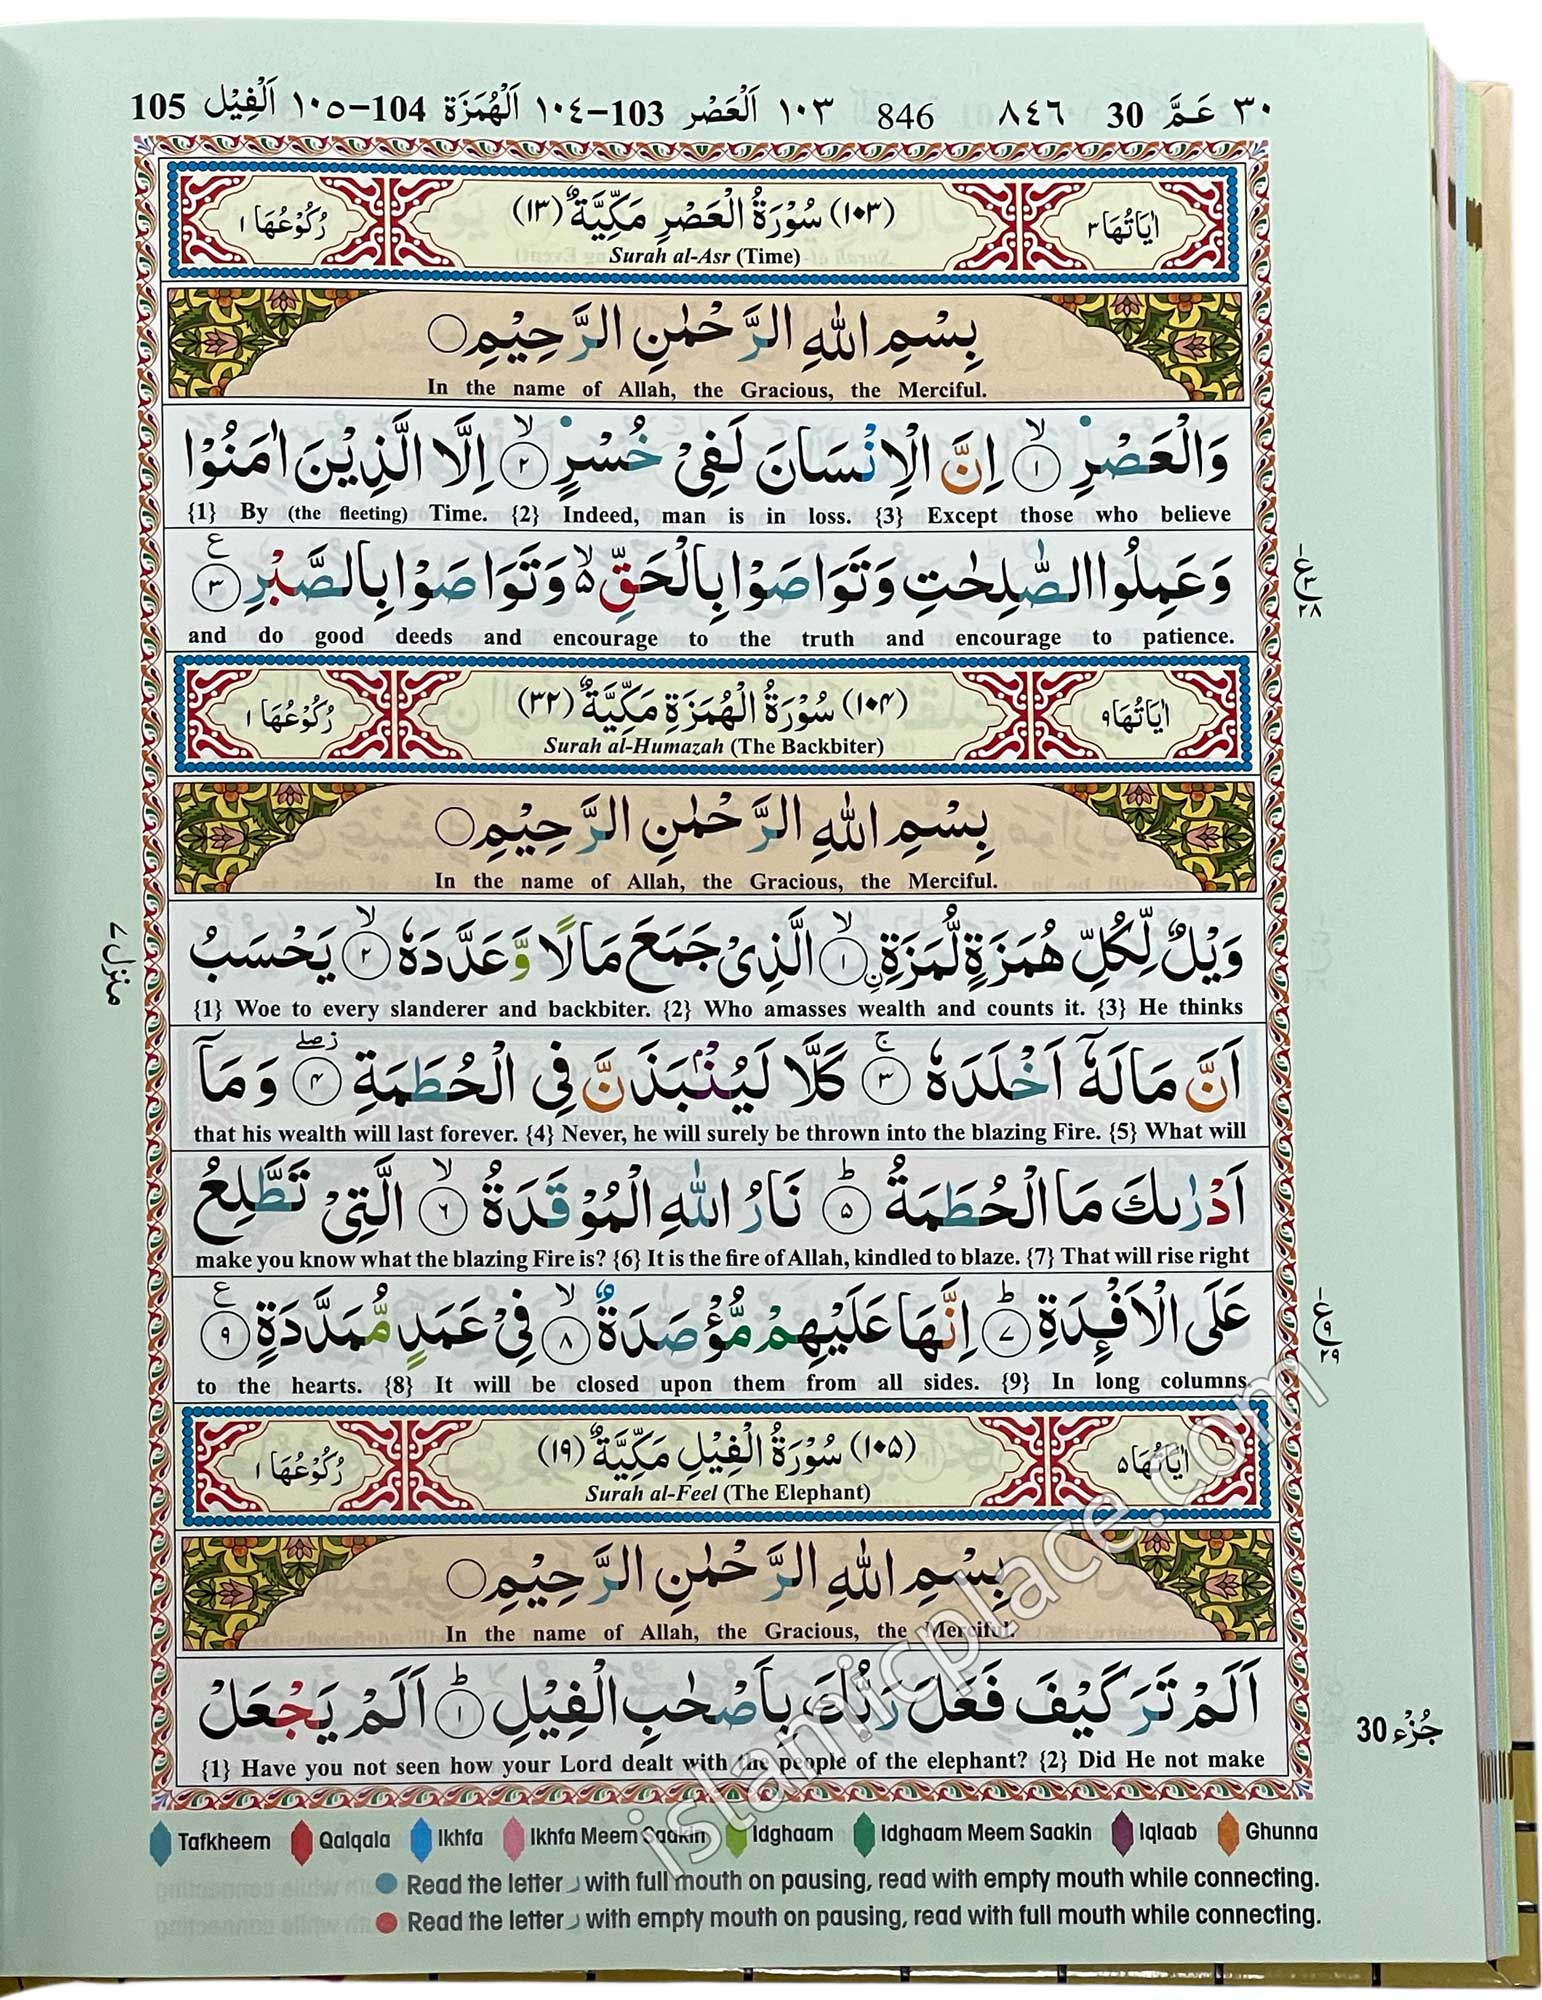 ٣٠ عَمَّ 30 ٨٤٦ 846 ١٠٣ اَلْعَصْر 103-١٠٤ اَلْهُمَزَة 104-١٠٥ اَلْفِيْل 105
اٰيَاتُهَا ٣ (١٠٣) سُوْرَةُ الْعَصْرِ مَكِّيَّةٌ (١٣) رُكُوْعُهَا ١
Surah al-Asr (Time)
بِسْمِ اللّٰهِ الرَّحْمٰنِ الرَّحِيْمِ
In the name of Allah, the Gracious, the Merciful.
وَالْعَصْرِ ۙ ١ اِنَّ الْاِنْسَانَ لَفِيْ خُسْرٍ ۙ ٢ اِلَّا الَّذِيْنَ اٰمَنُوْا
{1} By (the fleeting) Time. {2} Indeed, man is in loss. {3} Except those who believe
وَعَمِلُوا الصّٰلِحٰتِ وَتَوَاصَوْا بِالْحَقِّ ۙ۵ وَتَوَاصَوْا بِالصَّبْرِ ع ٣
and do good deeds and encourage to the truth and encourage to patience.
ع ١ ٣ ٢٨
اٰيَاتُهَا ٩ (١٠۴) سُوْرَةُ الْهُمَزَةِ مَكِّيَّةٌ (٣٢) رُكُوْعُهَا ١
Surah al-Humazah (The Backbiter)
بِسْمِ اللّٰهِ الرَّحْمٰنِ الرَّحِيْمِ
In the name of Allah, the Gracious, the Merciful.
وَيْلٌ لِّكُلِّ هُمَزَةٍ لُّمَزَةِ ۙ ١ ِن الَّذِيْ جَمَعَ مَالًا وَّعَدَّدَهٗ ۙ ٢ يَحْسَبُ
{1} Woe to every slanderer and backbiter. {2} Who amasses wealth and counts it. {3} He thinks
منزل ٧
اَنَّ مَالَهٗٓ اَخْلَدَهٗ ۚ ٣ كَلَّا لَيُنْۢبَذَنَّ فِى الْحُطَمَةِ زصلے ۴ وَمَآ
that his wealth will last forever. {4} Never, he will surely be thrown into the blazing Fire. {5} What will
اَدْرٰىكَ مَا الْحُطَمَةُ ؕ ۵ نَارُ اللّٰهِ الْمُوْقَدَةُ ۙ ٦ الَّتِيْ تَطَّلِعُ
make you know what the blazing Fire is? {6} It is the fire of Allah, kindled to blaze. {7} That will rise right
عَلَى الْاَفْـِٕدَةِ ؕ ٧ اِنَّهَا عَلَيْهِمْ مُّؤْصَدَةٌ ۙ ٨ فِيْ عَمَدٍ مُّمَدَّدَةٍ ع ٩
to the hearts. {8} It will be closed upon them from all sides. {9} In long columns.
ع ١ ٩ ٢٩
اٰيَاتُهَا ۵ (١٠۵) سُوْرَةُ الْفِيْلِ مَكِّيَّةٌ (١٩) رُكُوْعُهَا ١
Surah al-Feel (The Elephant)
بِسْمِ اللّٰهِ الرَّحْمٰنِ الرَّحِيْمِ
In the name of Allah, the Gracious, the Merciful.
اَلَمْ تَرَ كَيْفَ فَعَلَ رَبُّكَ بِاَصْحٰبِ الْفِيْلِ ؕ ١ اَلَمْ يَجْعَلْ
{1} Have you not seen how your Lord dealt with the people of the elephant? {2} Did He not make
جُزْء 30
Tafkheem Qalqala Ikhfa Ikhfa Meem Saakin Idghaam Idghaam Meem Saakin Iqlaab Ghunna
Read the letter ر with full mouth on pausing, read with empty mouth while connecting.
Read the letter ر with empty mouth on pausing, read with full mouth while connecting.
islamicplace.com